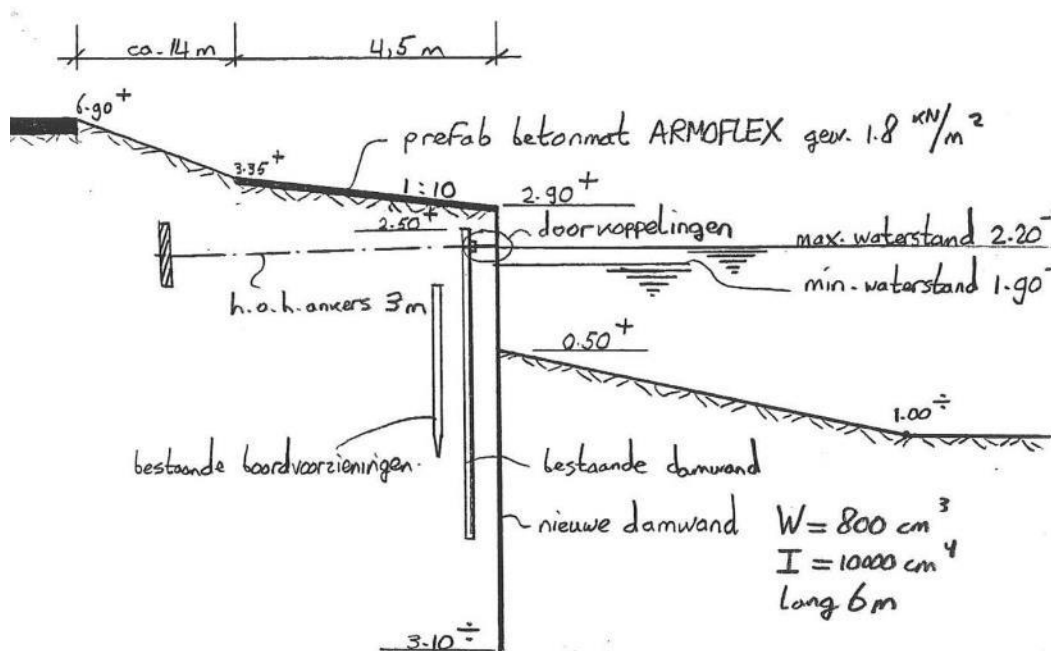 ca. 14 m
4,5 m
6.90 +
prefab betonmat ARMOFLEX gew. 1.8 KN/m²
3.35 +
1:10
2.90 +
2.50 +
doorkoppelingen
max. waterstand 2.20 -
min. waterstand 1.90 -
h.o.h. ankers 3 m
0.50 +
1.00 ÷
bestaande boordvoorzieningen.
bestaande damwand
nieuwe damwand
W = 800 cm³
I = 10000 cm⁴
lang 6 m
3.10 ÷